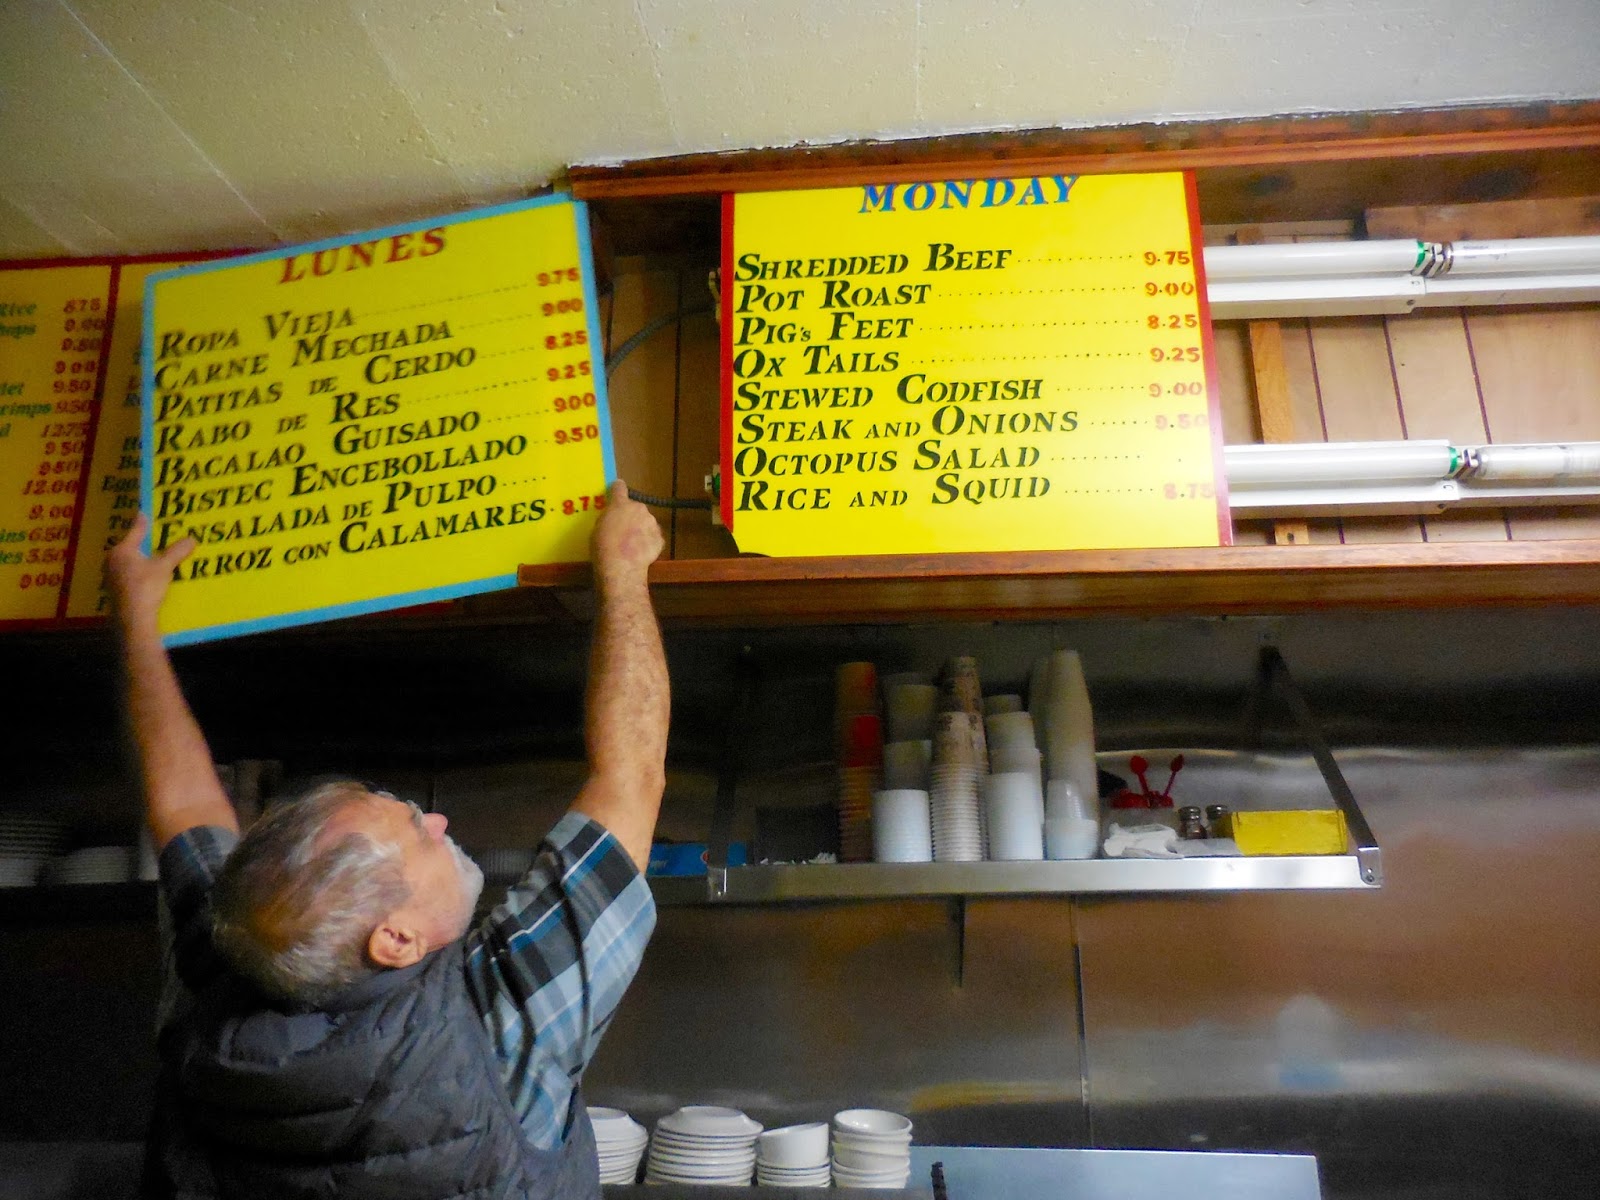 Rice 8.75
9.00
9.50
9.00
9.50
9.50
12.75
9.50
9.50
12.00
9.00
6.50
3.50
9.00
LUNES
ROPA VIEJA 9.75
CARNE MECHADA 9.00
PATITAS DE CERDO 8.25
RABO DE RES 9.25
BACALAO GUISADO 9.00
BISTEC ENCEBOLLADO 9.50
ENSALADA DE PULPO
ARROZ CON CALAMARES 8.75
MONDAY
SHREDDED BEEF 9.75
POT ROAST 9.00
PIG's FEET 8.25
OX TAILS 9.25
STEWED CODFISH 9.00
STEAK AND ONIONS 9.50
OCTOPUS SALAD
RICE AND SQUID 8.75